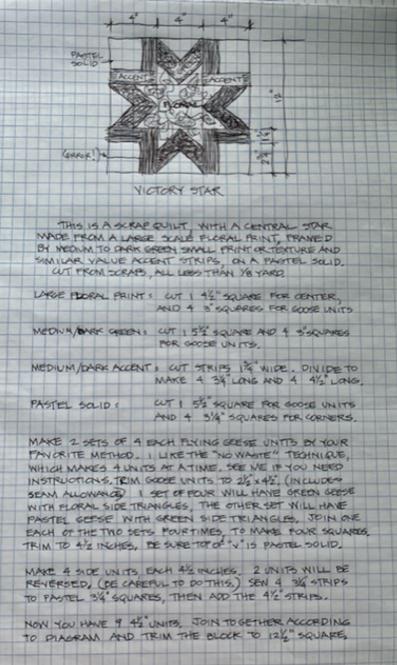 4" 4" 4"
PASTEL
SOLID
ACCENT ACCENT
FLORAL
12"
(ERROR!)
VICTORY STAR
THIS IS A SCRAP QUILT, WITH A CENTRAL STAR
MADE FROM A LARGE SCALE FLORAL PRINT, FRAMED
BY MEDIUM TO DARK GREEN SMALL PRINT OR TEXTURE AND
SIMILAR VALUE ACCENT STRIPS, ON A PASTEL SOLID.
CUT FROM SCRAPS, ALL LESS THAN 1/8 YARD.
LARGE FLORAL PRINT: CUT 1 4½" SQUARE FOR CENTER,
AND 4 3" SQUARES FOR GOOSE UNITS
MEDIUM/DARK GREEN: CUT 1 5½" SQUARE AND 4 3" SQUARES
FOR GOOSE UNITS.
MEDIUM/DARK ACCENT: CUT STRIPS WIDE. DIVIDE TO
MAKE 4 3¼" LONG AND 4 4½" LONG.
PASTEL SOLID: CUT 1 5½" SQUARE FOR GOOSE UNITS
AND 4 3¼" SQUARES FOR CORNERS.
MAKE 2 SETS OF 4 EACH FLYING GEESE UNITS BY YOUR
FAVORITE METHOD. I LIKE THE "NO WASTE" TECHNIQUE,
WHICH MAKES 4 UNITS AT A TIME. SEE ME IF YOU NEED
INSTRUCTIONS. TRIM GOOSE UNITS TO 2½" x 4½", (INCLUDES
SEAM ALLOWANCE) 1 SET OF FOUR WILL HAVE GREEN GEESE
WITH FLORAL SIDE TRIANGLES, THE OTHER SET WILL HAVE
PASTEL GEESE WITH GREEN SIDE TRIANGLES. JOIN ONE
EACH OF THE TWO SETS FOUR TIMES, TO MAKE FOUR SQUARES.
TRIM TO 4½ INCHES. BE SURE TOP OF "V" IS PASTEL SOLID.
MAKE 4 SIDE UNITS, EACH 4½ INCHES. 2 UNITS WILL BE
REVERSED. (BE CAREFUL TO DO THIS.) SEW 4 3¼" STRIPS
TO PASTEL 3¼" SQUARES, THEN ADD THE 4½" STRIPS.
NOW YOU HAVE 9 4½" UNITS. JOIN TOGETHER ACCORDING
TO DIAGRAM AND TRIM THE BLOCK TO 12½" SQUARE.